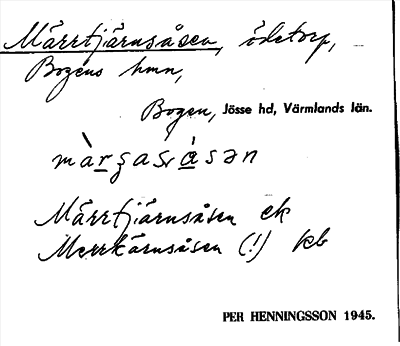 Märrtjärnsåsen, ödetorp,
Bogens hmn,
Bogen, Jösse hd, Värmlands län.
Märrtjärnsåsen ek
Merrkärnsåsen (!) kb
PER HENNINGSSON 1945.